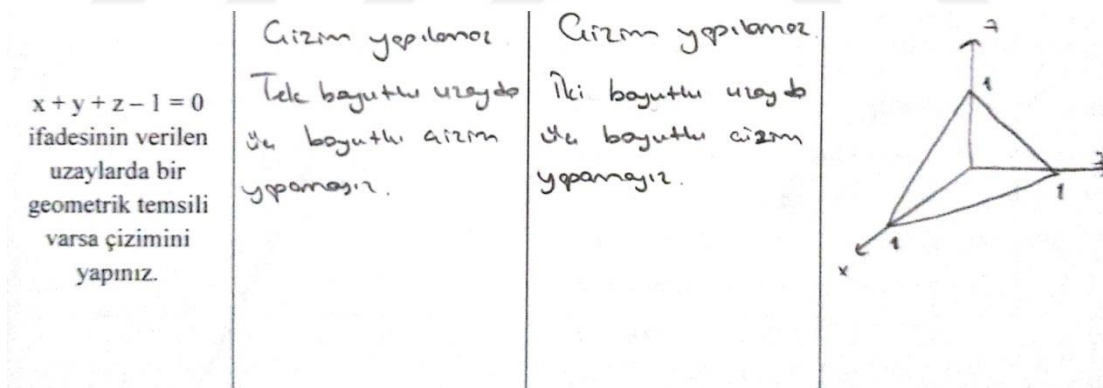 x + y + z – 1 = 0
ifadesinin verilen
uzaylarda bir
geometrik temsili
varsa çizimini
yapınız.
Çizim yapılamaz.
Tek boyutlu uzayda
üç boyutlu çizim
yapamayız.
Çizim yapılamaz.
İki boyutlu uzayda
üç boyutlu çizim
yapamayız.
z
1
y
1
1
x